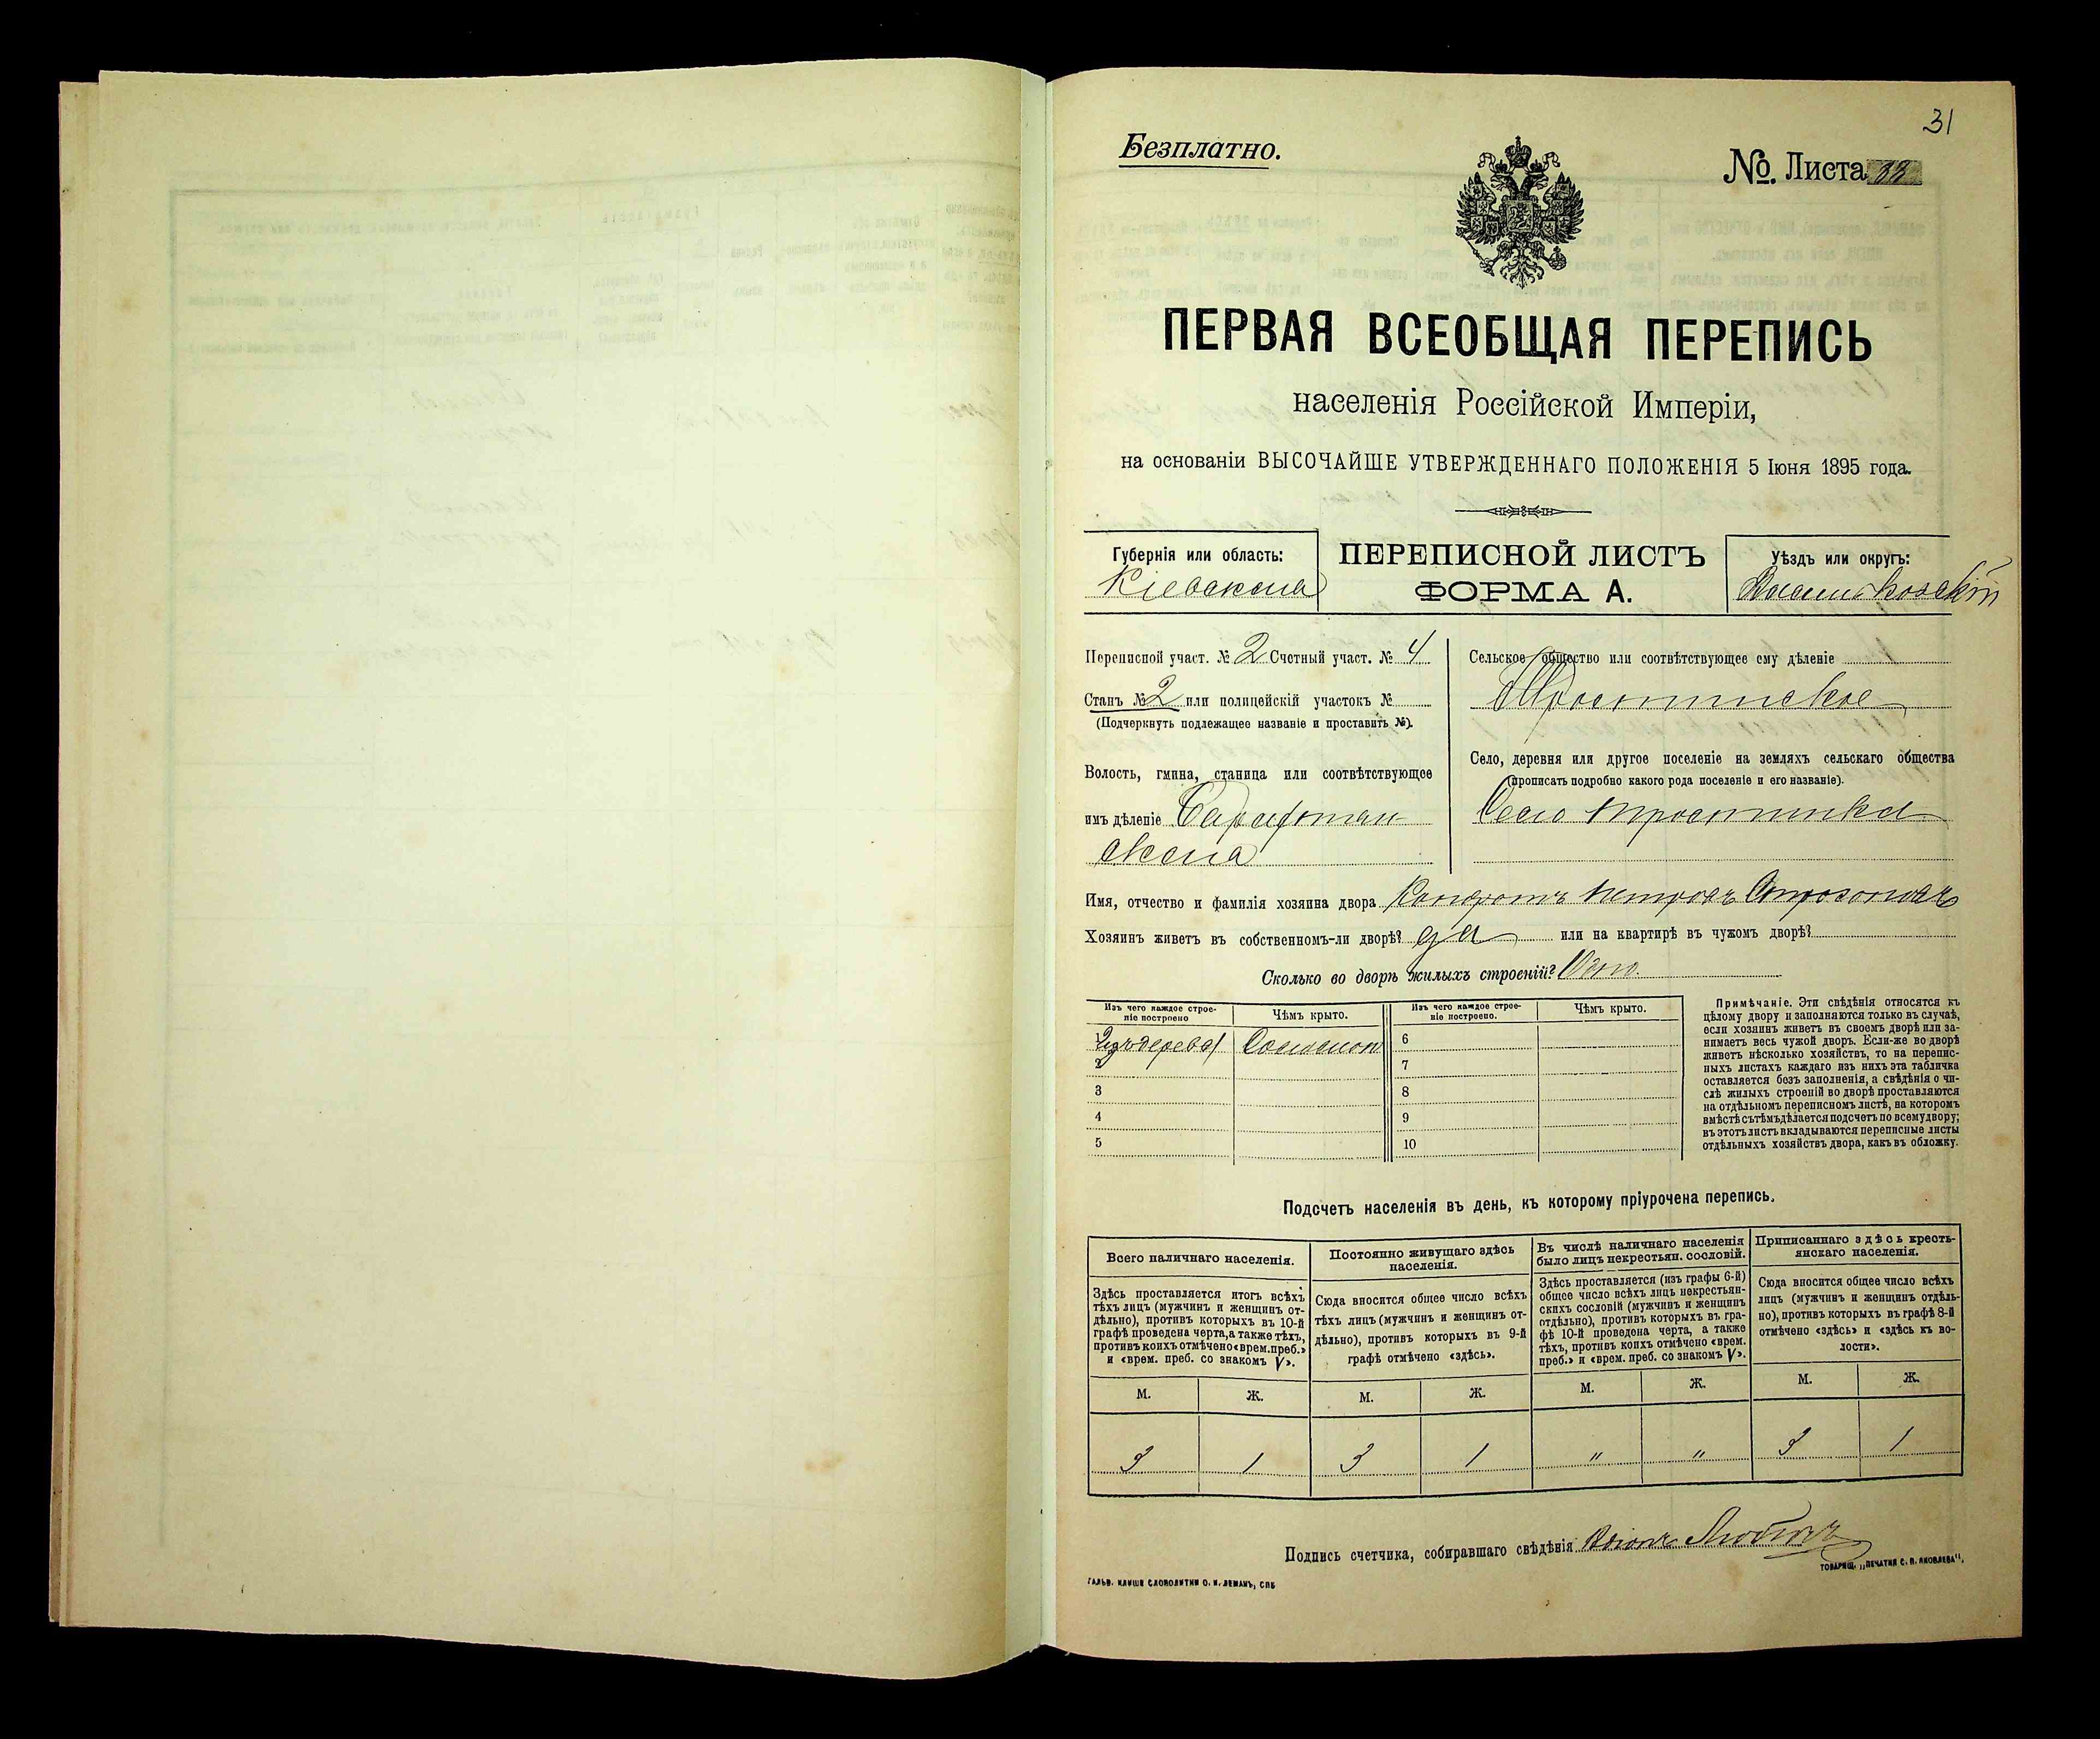 31
Безплатно.
№. Листа 33
ПЕРВАЯ ВСЕОБЩАЯ ПЕРЕПИСЬ
населенія Россійской Имперіи,
на основаніи ВЫСОЧАЙШЕ УТВЕРЖДЕННАГО ПОЛОЖЕНІЯ 5 Іюня 1895 года.
Губернія или область:
Кіевская
ПЕРЕПИСНОЙ ЛИСТЪ
ФОРМА А.
Уѣздъ или округъ:
Васильковскій
Переписной участ. № 2 Счетный участ. № 4
Станъ № 2 или полицейскій участокъ №
(Подчеркнуть подлежащее названіе и проставить №).
Волость, гмина, станица или соотвѣтствующее
имъ дѣленіе Барахтян
ская
Сельское общество или соотвѣтствующее ему дѣленіе
Тростинское
Село, деревня или другое поселеніе на земляхъ сельскаго общества
(прописать подробно какого рода поселеніе и его названіе).
Село Тростинка
Имя, отчество и фамилія хозяина двора Кондратъ Петровъ
Хозяинъ живетъ въ собственномъ-ли дворѣ? да или на квартирѣ въ чужомъ дворѣ?
Сколько во дворѣ жилыхъ строеній? Одно.
Изъ чего каждое строе-
ніе построено
Чѣмъ крыто.
Изъ чего каждое строе-
ніе построено.
Чѣмъ крыто.
Изъ дерева Соломой 6
2 7
3 8
4 9
5 10
Примѣчаніе. Эти свѣдѣнія относятся къ
цѣлому двору и заполняются только въ случаѣ,
если хозяинъ живетъ въ своемъ дворѣ или за-
нимаетъ весь чужой дворъ. Если-же во дворѣ
живетъ нѣсколько хозяйствъ, то на перепис-
ныхъ листахъ каждаго изъ нихъ эта табличка
оставляется безъ заполненія, а свѣдѣнія о чи-
слѣ жилыхъ строеній во дворѣ проставляются
на отдѣльномъ переписномъ листѣ, на которомъ
вмѣстѣ съ тѣмъ дѣлается подсчетъ по всему двору;
въ этотъ листъ вкладываются переписные листы
отдѣльныхъ хозяйствъ двора, какъ въ обложку.
Подсчетъ населенія въ день, къ которому пріурочена перепись.
Всего наличнаго населенія.
Здѣсь проставляется итогъ всѣхъ
тѣхъ лицъ (мужчинъ и женщинъ от-
дѣльно), противъ которыхъ въ 10-й
графѣ проведена черта, а также тѣхъ,
противъ коихъ отмѣчено «врем. преб.»
и «врем. преб. со знакомъ V».
Постоянно живущаго здѣсь
населенія.
Сюда вносится общее число всѣхъ
тѣхъ лицъ (мужчинъ и женщинъ от-
дѣльно), противъ которыхъ въ 9-й
графѣ отмѣчено «здѣсь».
Въ числѣ наличнаго населенія
было лицъ некрестьян. сословій.
Здѣсь проставляется (изъ графы 6-й)
общее число всѣхъ лицъ некрестьян-
скихъ сословій (мужчинъ и женщинъ
отдѣльно), противъ которыхъ въ гра-
фѣ 10-й проведена черта, а также
тѣхъ, противъ коихъ отмѣчено «врем.
преб.» и «врем. преб. со знакомъ V».
Приписаннаго здѣсь кресть-
янскаго населенія.
Сюда вносится общее число всѣхъ
лицъ (мужчинъ и женщинъ отдѣль-
но), противъ которыхъ въ графѣ 8-й
отмѣчено «здѣсь» и «здѣсь къ во-
лости».
М. Ж. М. Ж. М. Ж. М. Ж.
3 1 3 1 " " 3 1
Подпись счетчика, собиравшаго свѣдѣнія
ГАЛЬВ. КЛИШЕ СЛОВОЛИТНИ О. И. ЛЕМАНЪ, СПБ
ТОВАРИЩ. „ПЕЧАТНЯ С. П. ЯКОВЛЕВА".